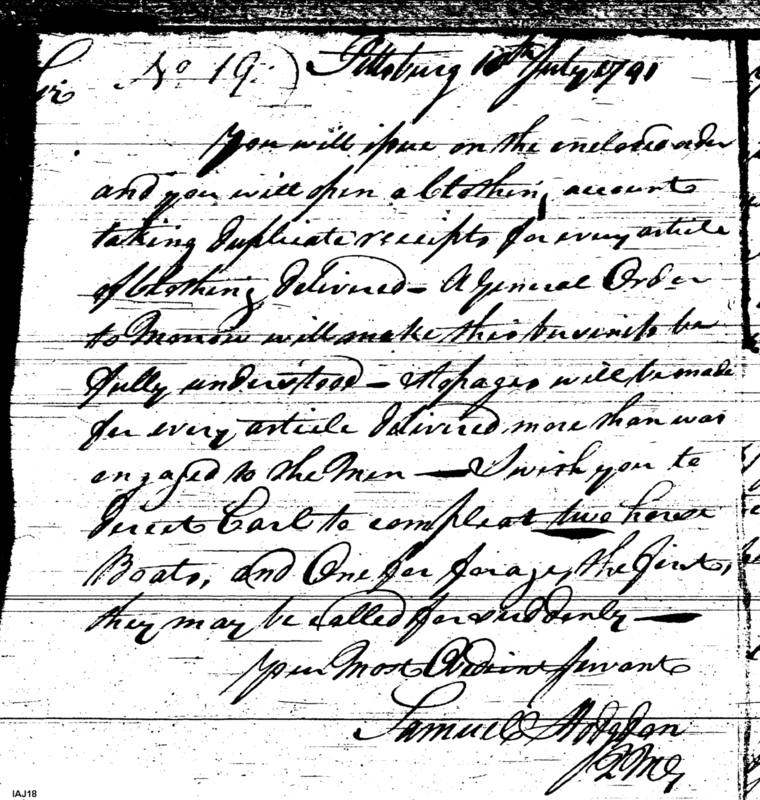 Sir No 19. ) Pittsburg 10th July 1791
You will issue on the enclosed order
and you will open a Clothing account
taking Duplicate receipts for every article
of Clothing Delivered — A General Order
to Morrow will make this business be
fully understood — Stopages will be made
for every article delivered more than was
engaged to the Men — I wish you to
direct Carl to compleat two horse
Boats, and One for forage, the first,
they may be called for suddenly —
Your Most Obedient Servant
Samuel Hodgdon
QMG
IAJ18